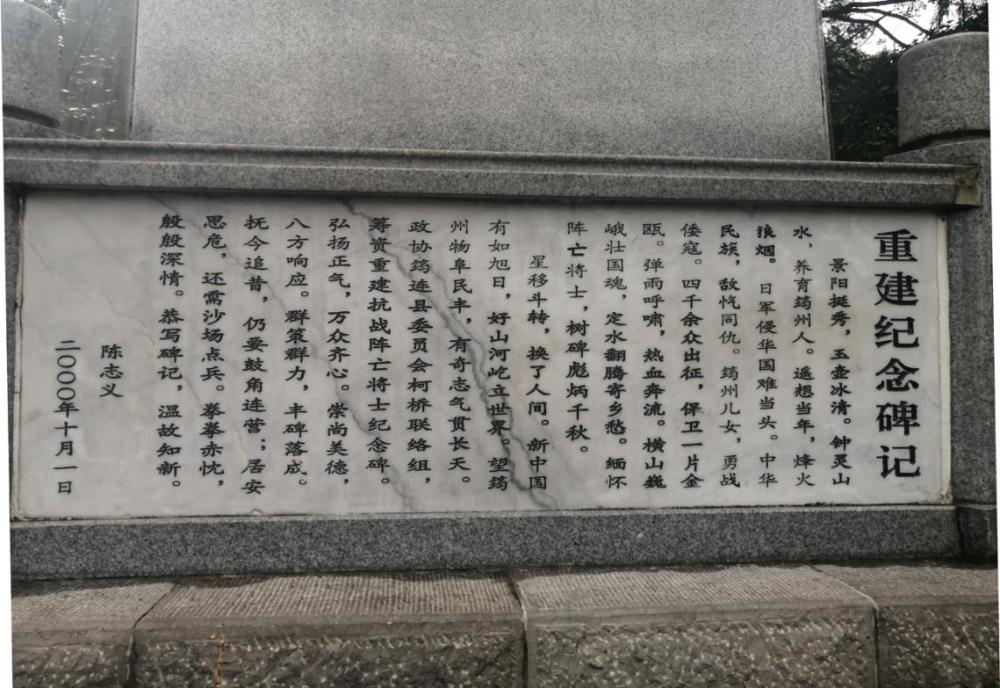 重建纪念碑记
景阳挺秀，玉壶冰清。钟灵山
水，养育筠州人。遥想当年，烽火
狼烟。日军侵华国难当头。中华
民族，敌忾同仇。筠州儿女，勇战
倭寇。四千余众出征，保卫一片金
瓯。弹雨呼啸，热血奔流。横山巍
峨壮国魂，定水翻腾寄乡愁。缅怀
阵亡将士，树碑彪炳千秋。
星移斗转，换了人间。新中国
有如旭日，好山河屹立世界。望筠
州物阜民丰，有奇志气贯长天。
政协筠连县委员会柯桥联络组，
筹资重建抗战阵亡将士纪念碑。
弘扬正气，万众齐心。崇尚美德，
八方响应。群策群力，丰碑落成。
抚今追昔，仍要鼓角连营；居安
思危，还需沙场点兵。拳拳赤忱，
殷殷深情。恭写碑记，温故知新。
陈志义
二〇〇〇年十月一日